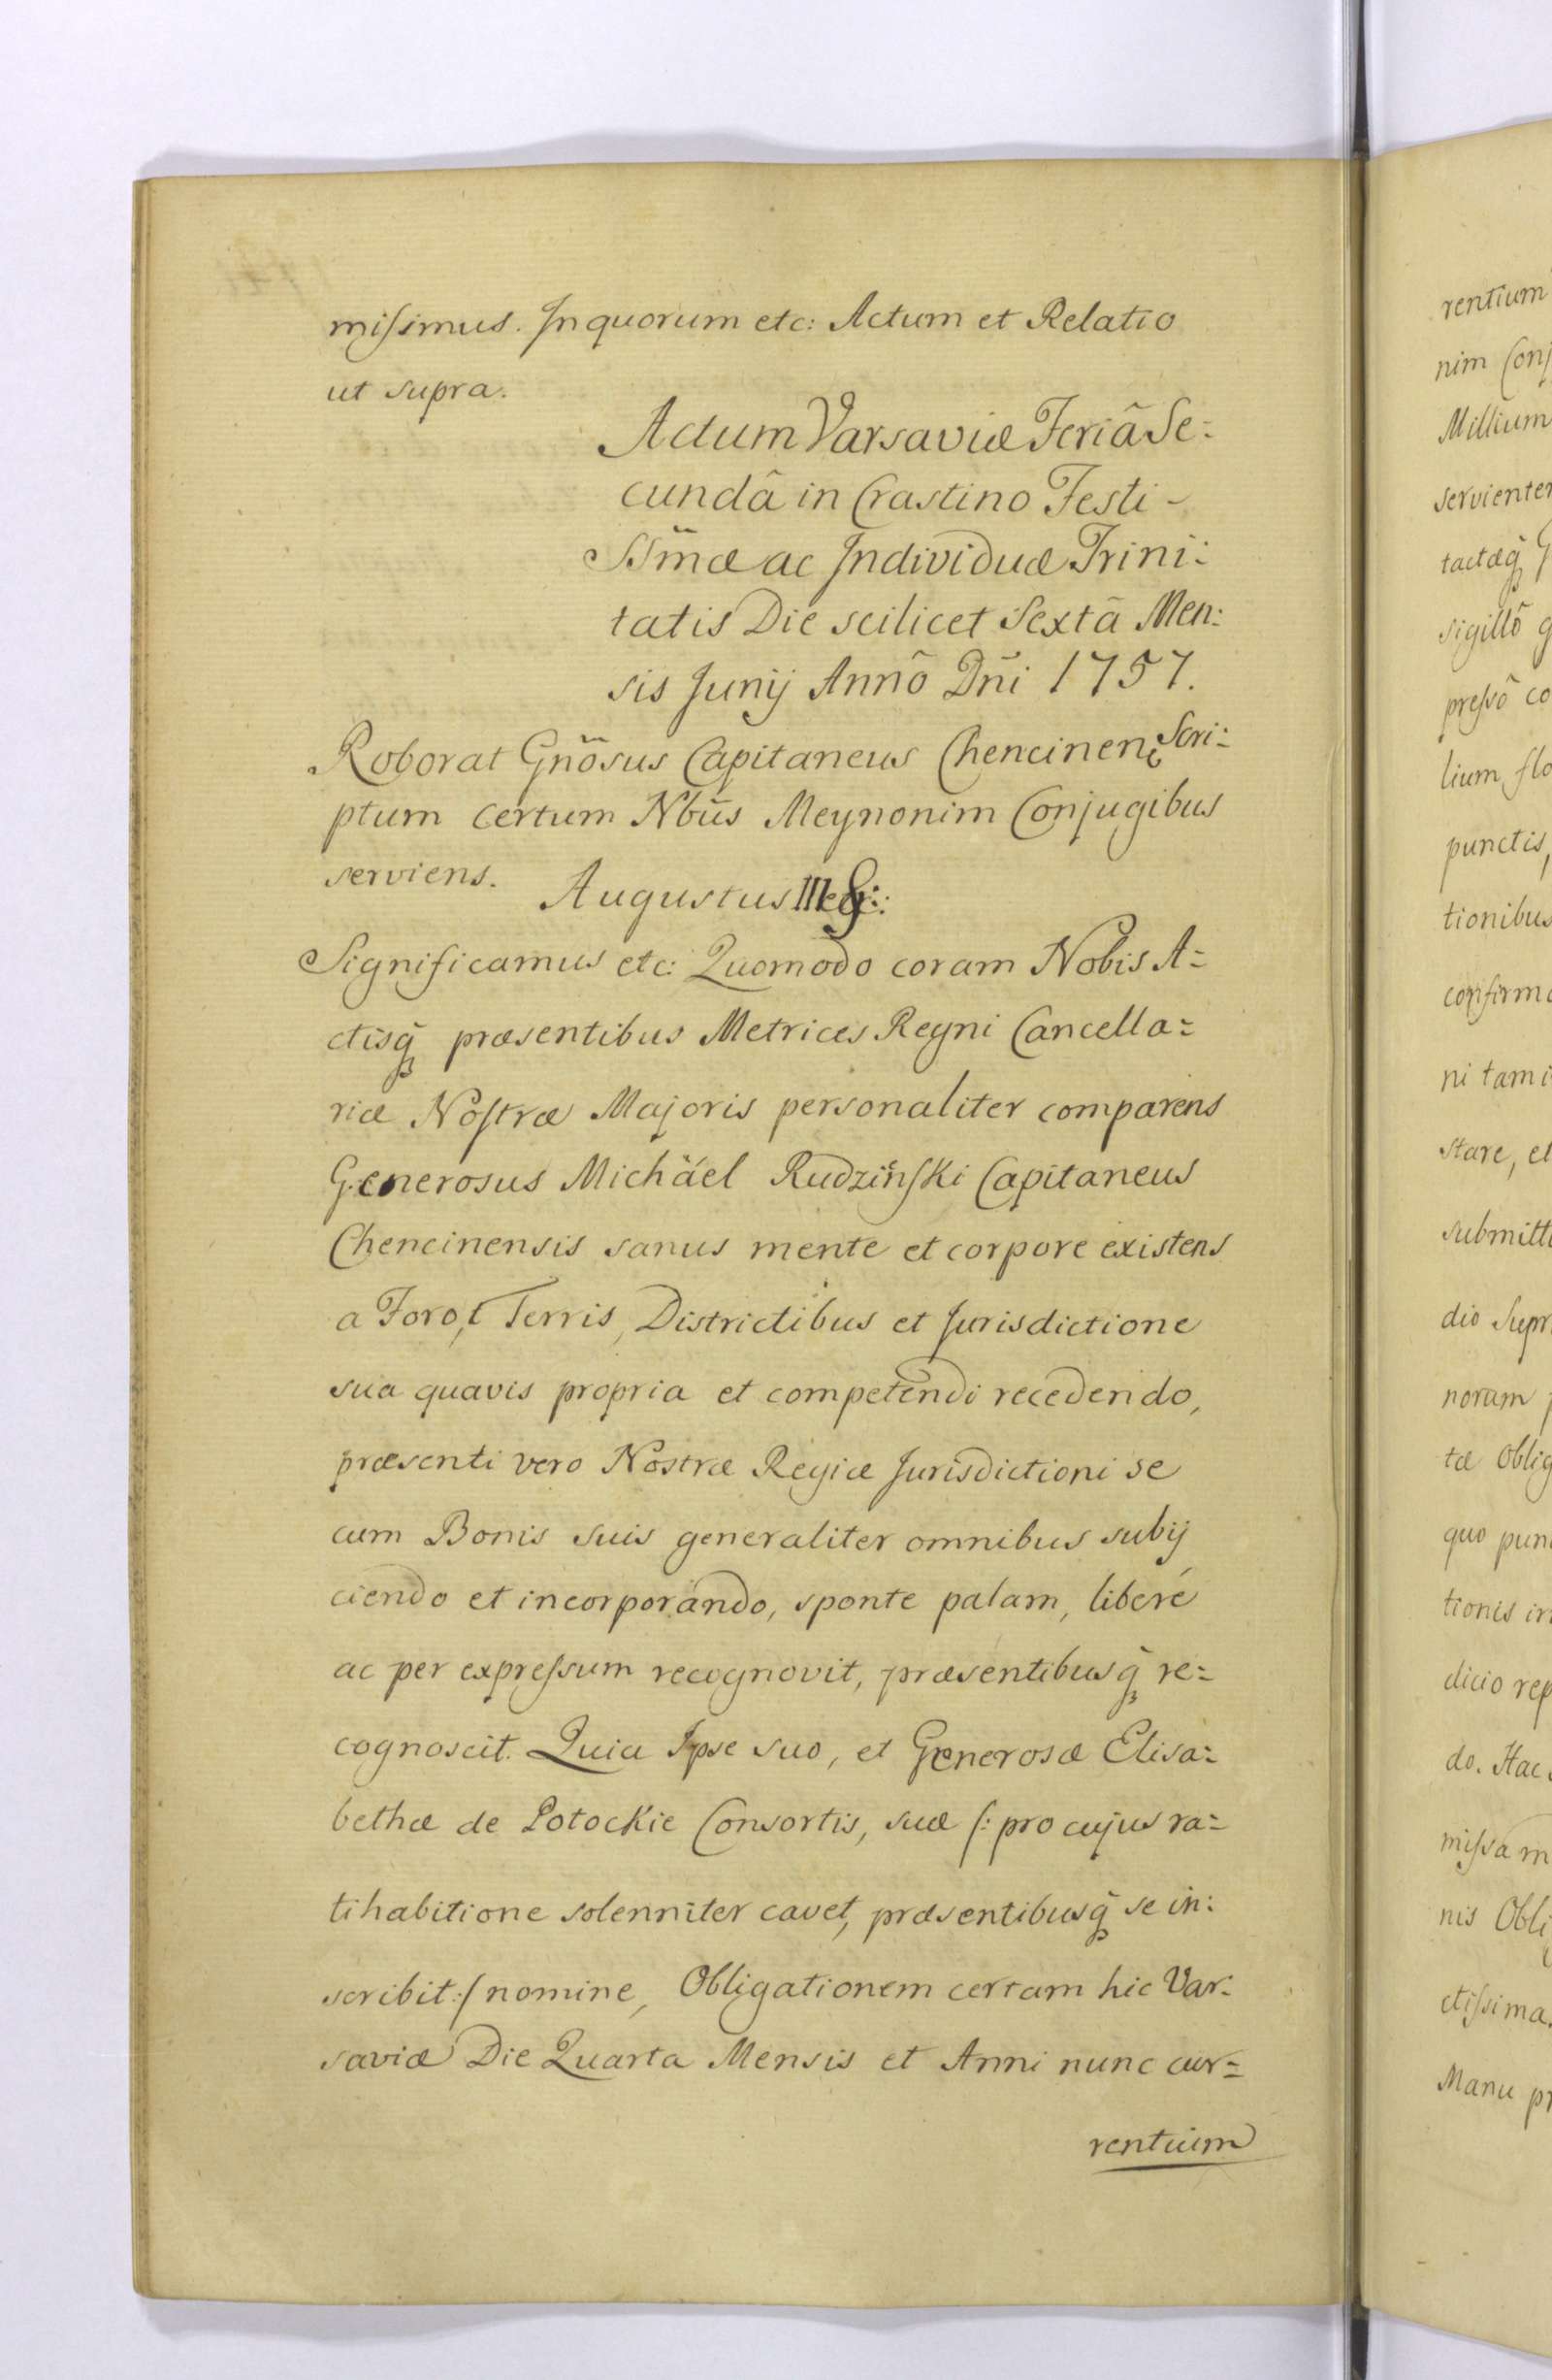 miſsimus. In quorum etc: Actum et Relatio
ut supra.
Actum Varsaviæ Feriâ Se=
cundâ in Crastino Festi -
SSm̃æ ac Individuæ Trini:
tatis Die scilicet Sextâ Men:
sis Junij Annô Dñi 1757.
Roborat Gnõsus Capitaneus Chencinen: Scri:
ptum certum Nbũs Meynonim Conjugibus
serviens.
Augustus III
Significamus etc: Quomodo coram Nobis A=
ctisq̃ præsentibus Metrices Regni Cancella=
riæ Noſtræ Majoris personaliter comparens
Generosus Michäel Rudzińſki Capitaneus
Chencinensis sanus mente et corpore existens
a Foro, Terris, Districtibus et Jurisdictione
sua quavis propria et competendi recedendo,
præsenti vero Nostræ Regiæ Jurisdictioni se
cum Bonis suis generaliter omnibus subij
ciendo et incorporando, sponte palam, liberé
ac per expreſsum recognovit, præsentibusq̃ re=
cognoscit. Quia Ipse suo, et Generosæ Elisa=
bethæ de Potockie Consortis, suæ /: pro cujus ra=
tihabitione solenniter cavet, præsentibusq̃ se in:
scribit :/ nomine, Obligationem certam hic Var:
saviæ Die Quarta Mensis et Anni nunc cur=
rentium
rentium
nim Conj
Millium
servienter
tactæq̃
sigillô g
preſsô co
lium flo
punctis,
tionibus
confirma
ni tam i
stare, et
submitt
dio Supr
noram
tæ Oblig
quo pun
tionis in
dicio rep
do. Hac
miſsa m
nis Obli
ctiſsima.
Manu pr